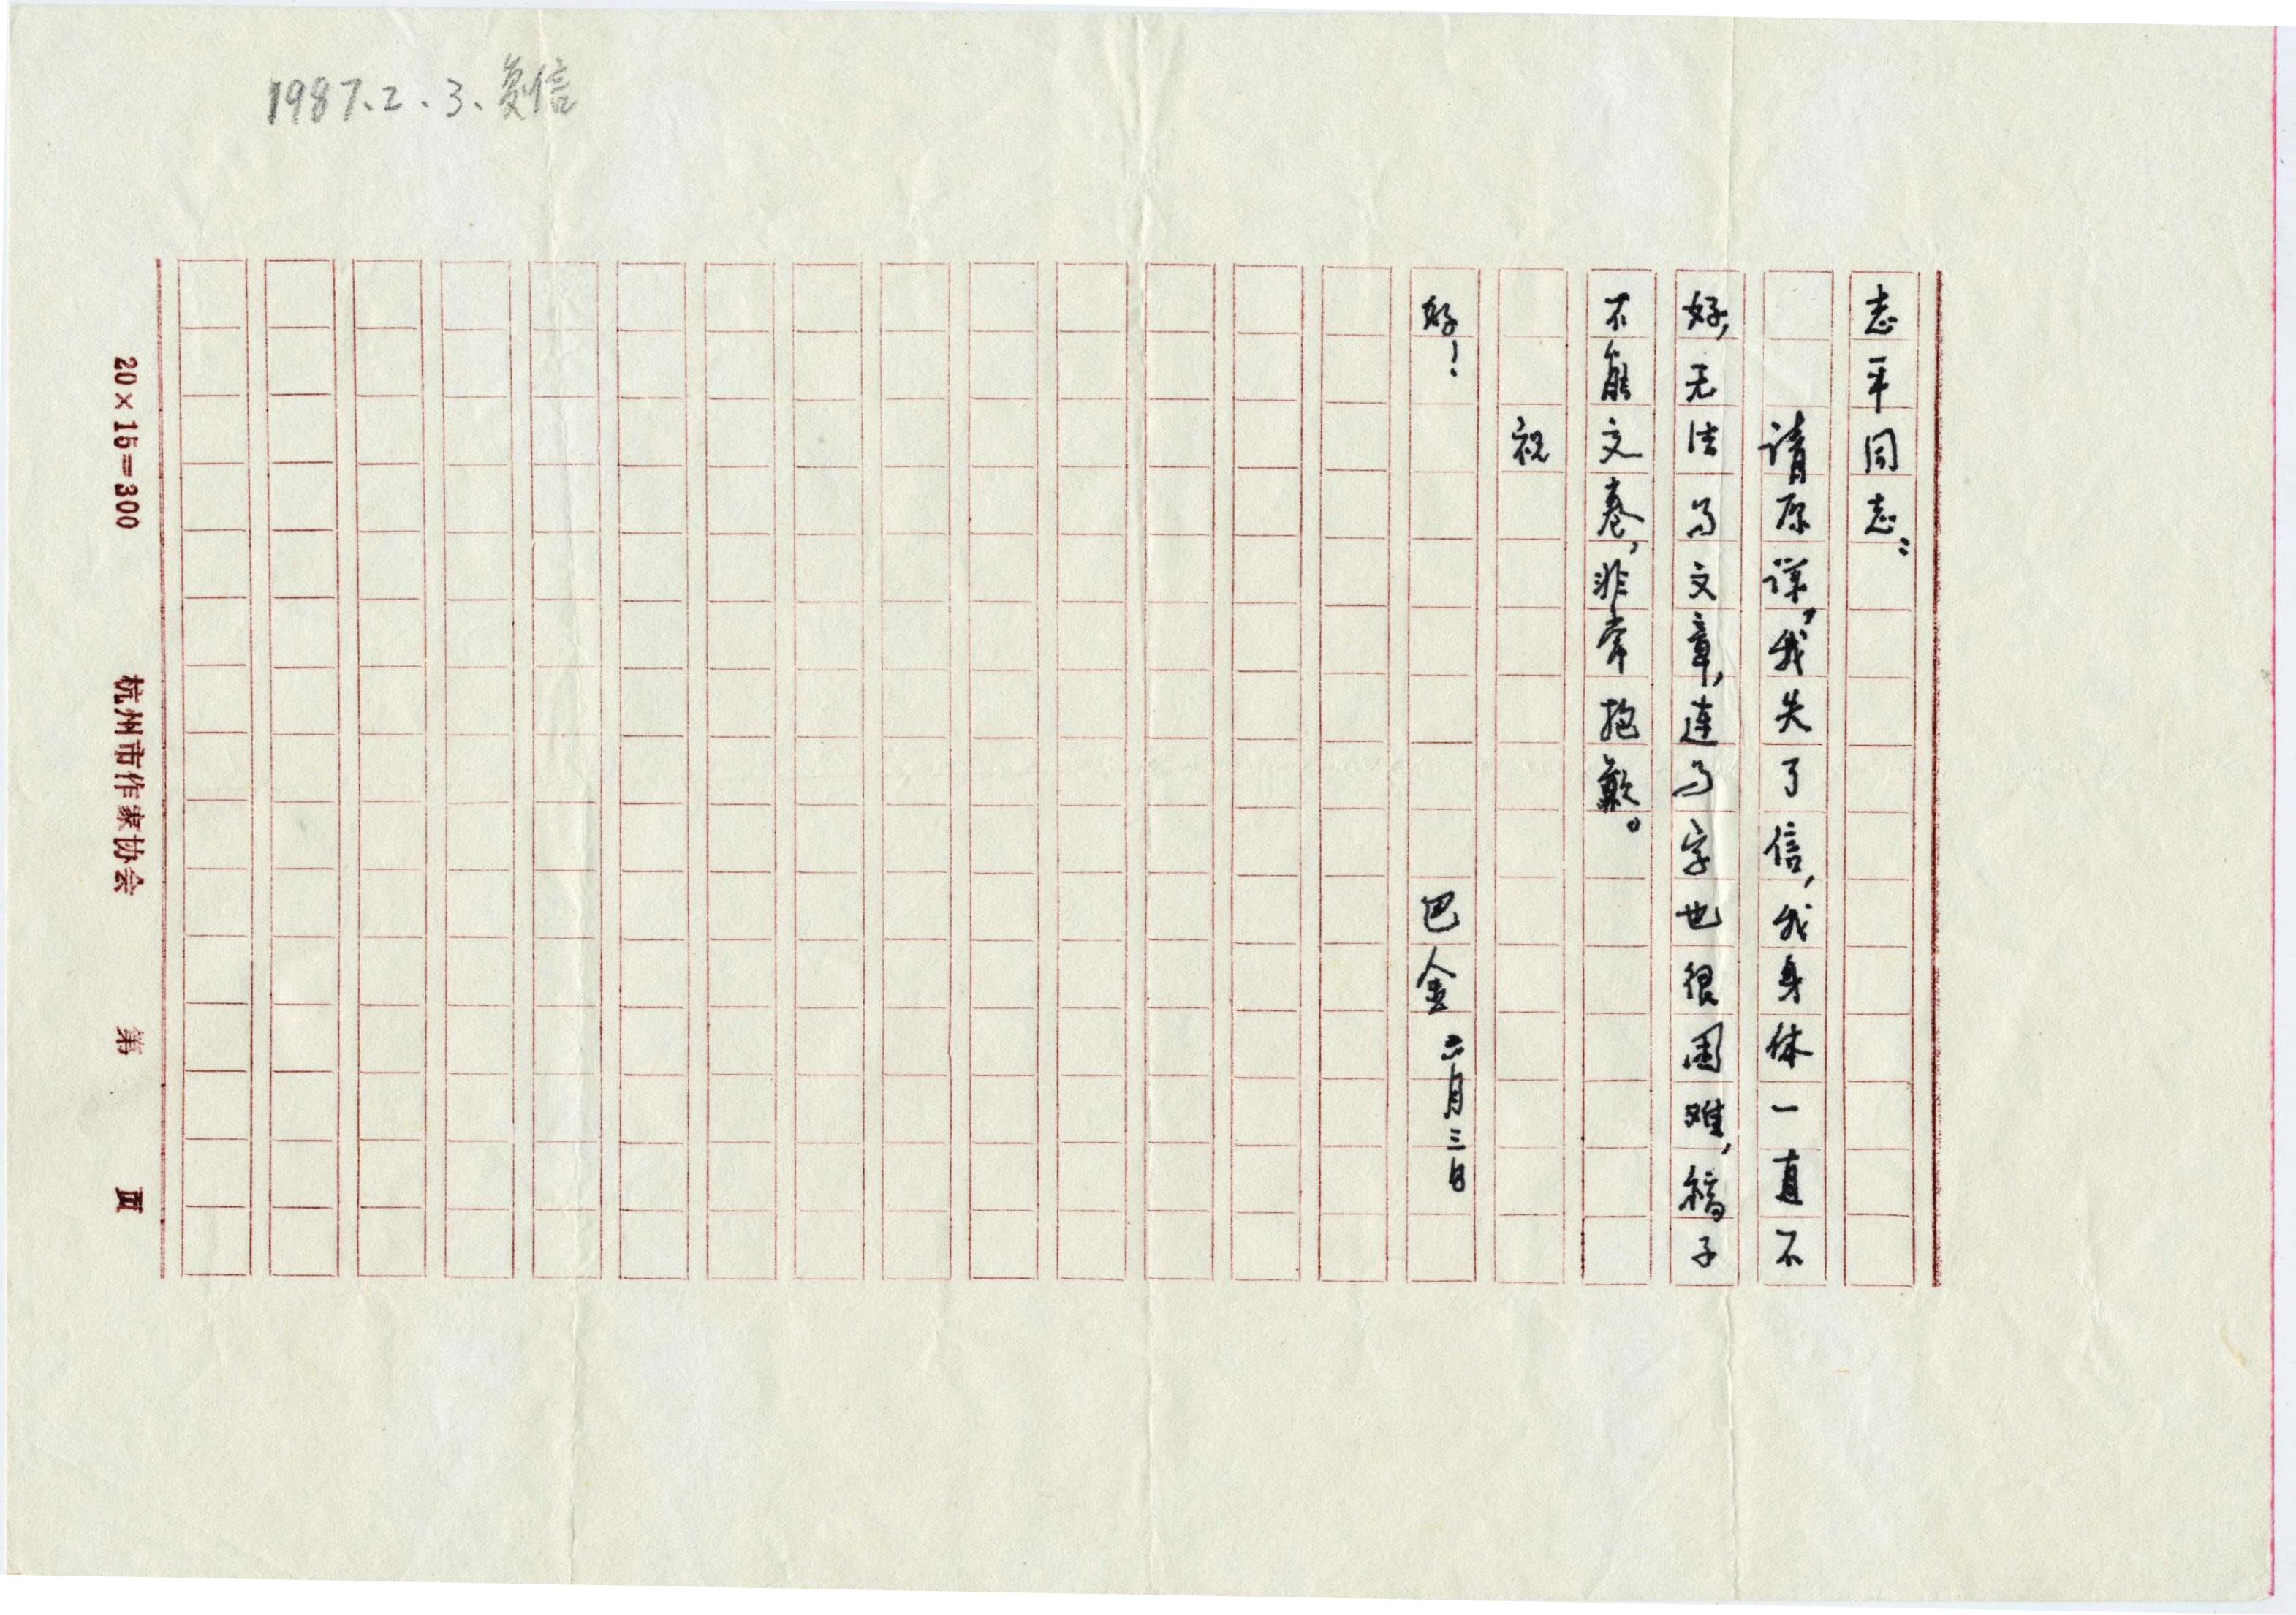 1987.2.3.复信
志平同志：
请原谅，我失了信，我身体一直不
好，无法写文章，连写字也很困难，稿子
不能交卷，非常抱歉。
祝
好！
巴金 六月三日
20×15=300 杭州市作家协会 第 页